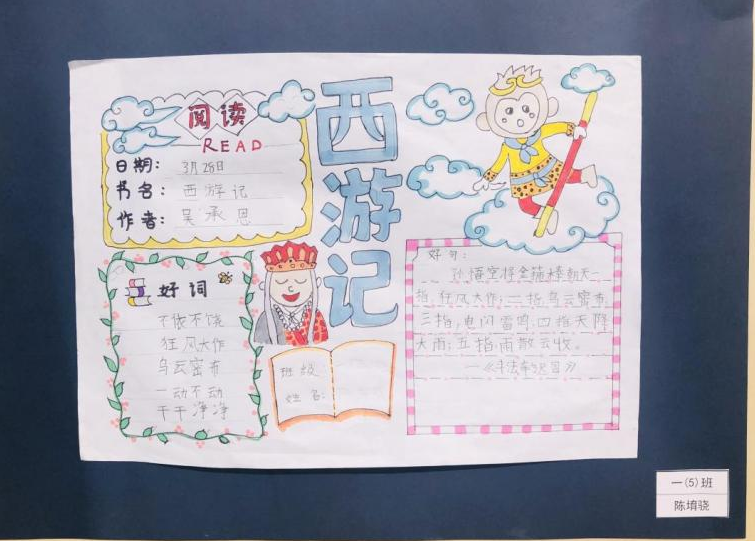 阅读
READ
日期：3月28日
书名：西游记
作者：吴承恩
西游记
好词
不依不饶
狂风大作
乌云密布
一动不动
干干净净
班级：
姓名：
好句：
孙悟空将金箍棒朝天一
指，狂风大作；二指，乌云密布；
三指，电闪雷鸣；四指天降
大雨；五指，雨散云收。
一(5)班
陈堉骁